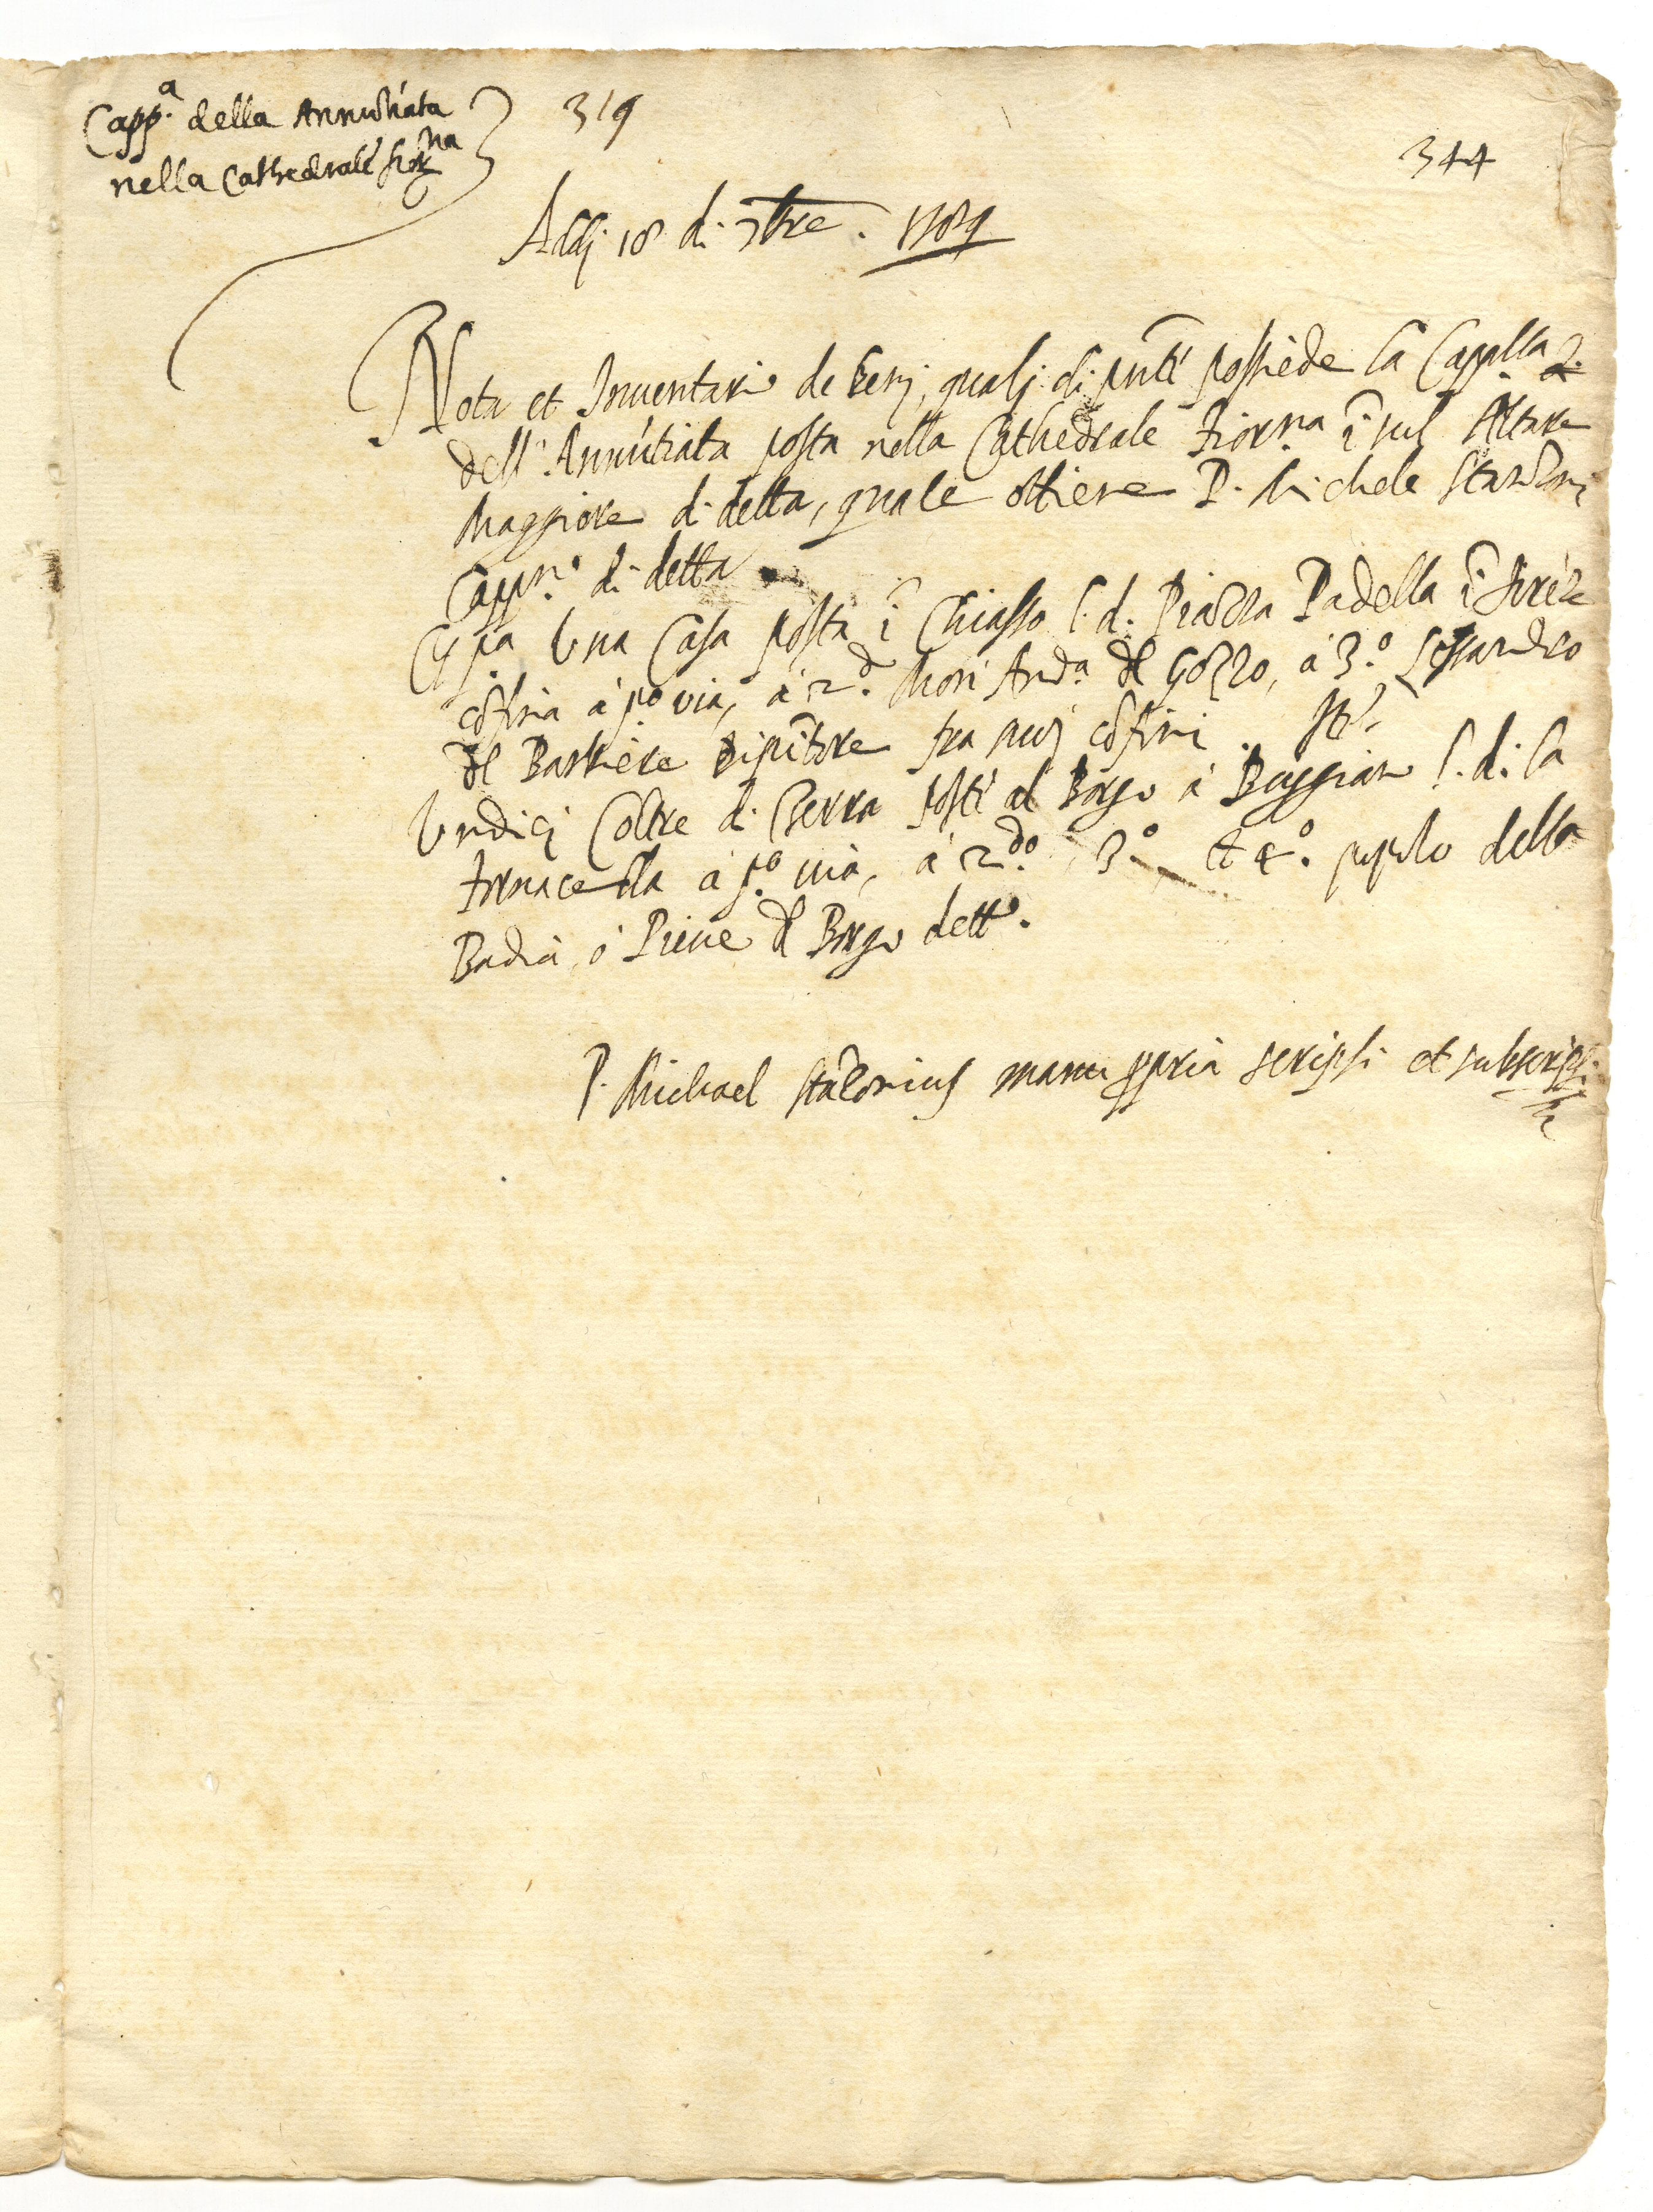 Capp.a della Annu͂tiata
nella Cathedrale fior.na
319
344
Adj 18 di 7bre. 1589
Nota et Inventario de beni, quali di pñte possiede la Cappella
dell'Annu͂tiata posta nella Cathedrale Fior.na ĩ sul Altare
Maggiore di detta, quale ottiene P. Michele
Capp.no di detta
una Casa posta ĩ Chiasso l. d. Piazza Padella ĩ firẽze
cõfina à p.o via, à 2.o And.a del Gozzo, à 3.o
del Barbiere dipĩtore fra suoj cõfini
Undici Coltre di Terra posti al Borgo à Buggiano l. d. la
fornacella à p.o via, à 2.do 3.o et 4.o popolo della
Badia, ò Pieve del Borgo detto.
P. Michael manu ppria scripsi et subscripsi